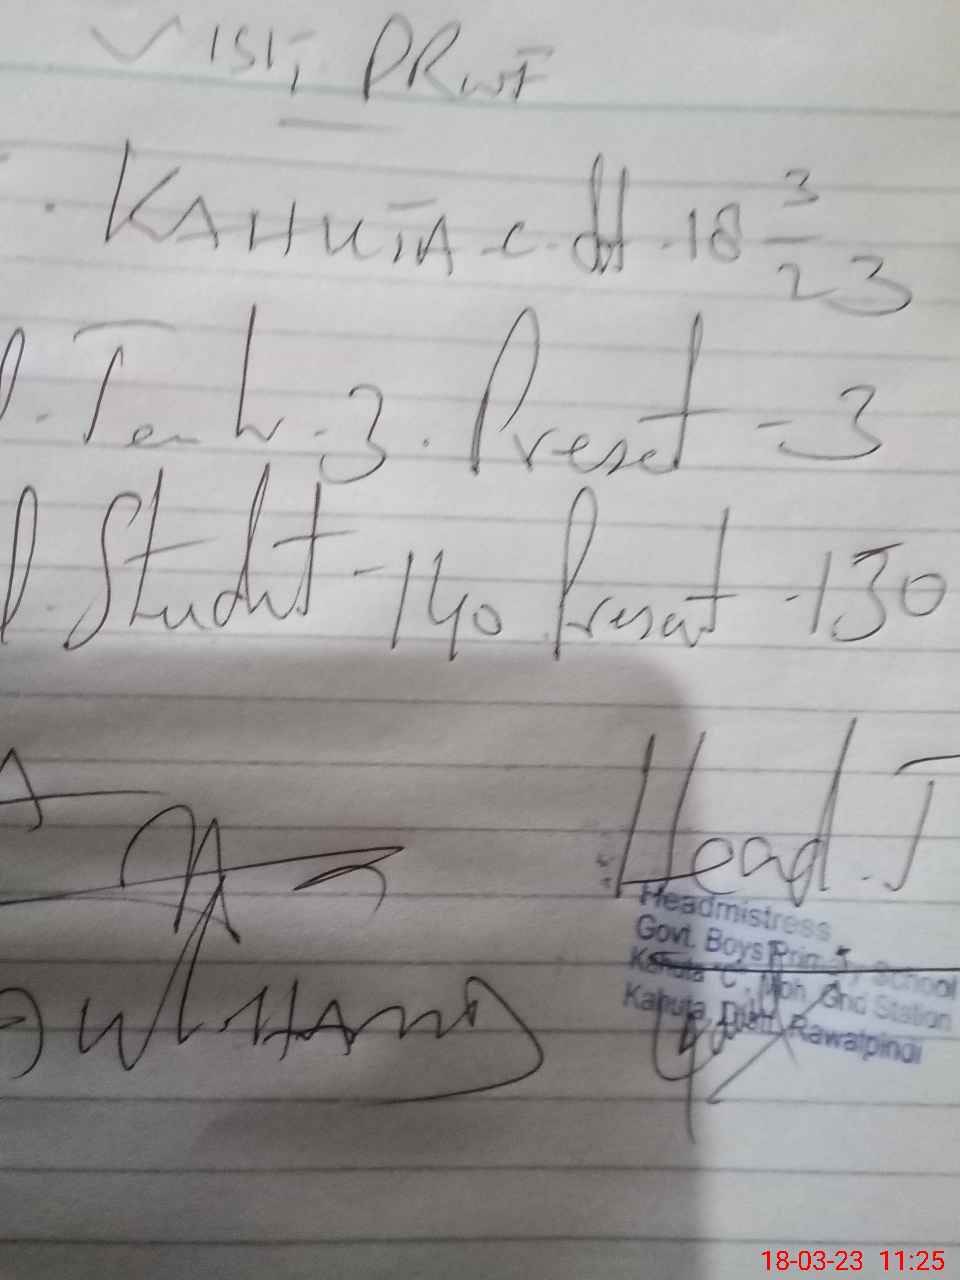 VISIT PRWF
. KAHUTA - C. dt. 18 3/23
. Tech - 3. Preset = 3
. Studnt - 140 Presat - 130
Head. T
Headmistress
Govt. Boys Primary School
Kahuta 'C', Moh, Grid Station
Kahuta, Distt. Rawalpindi
18-03-23 11:25